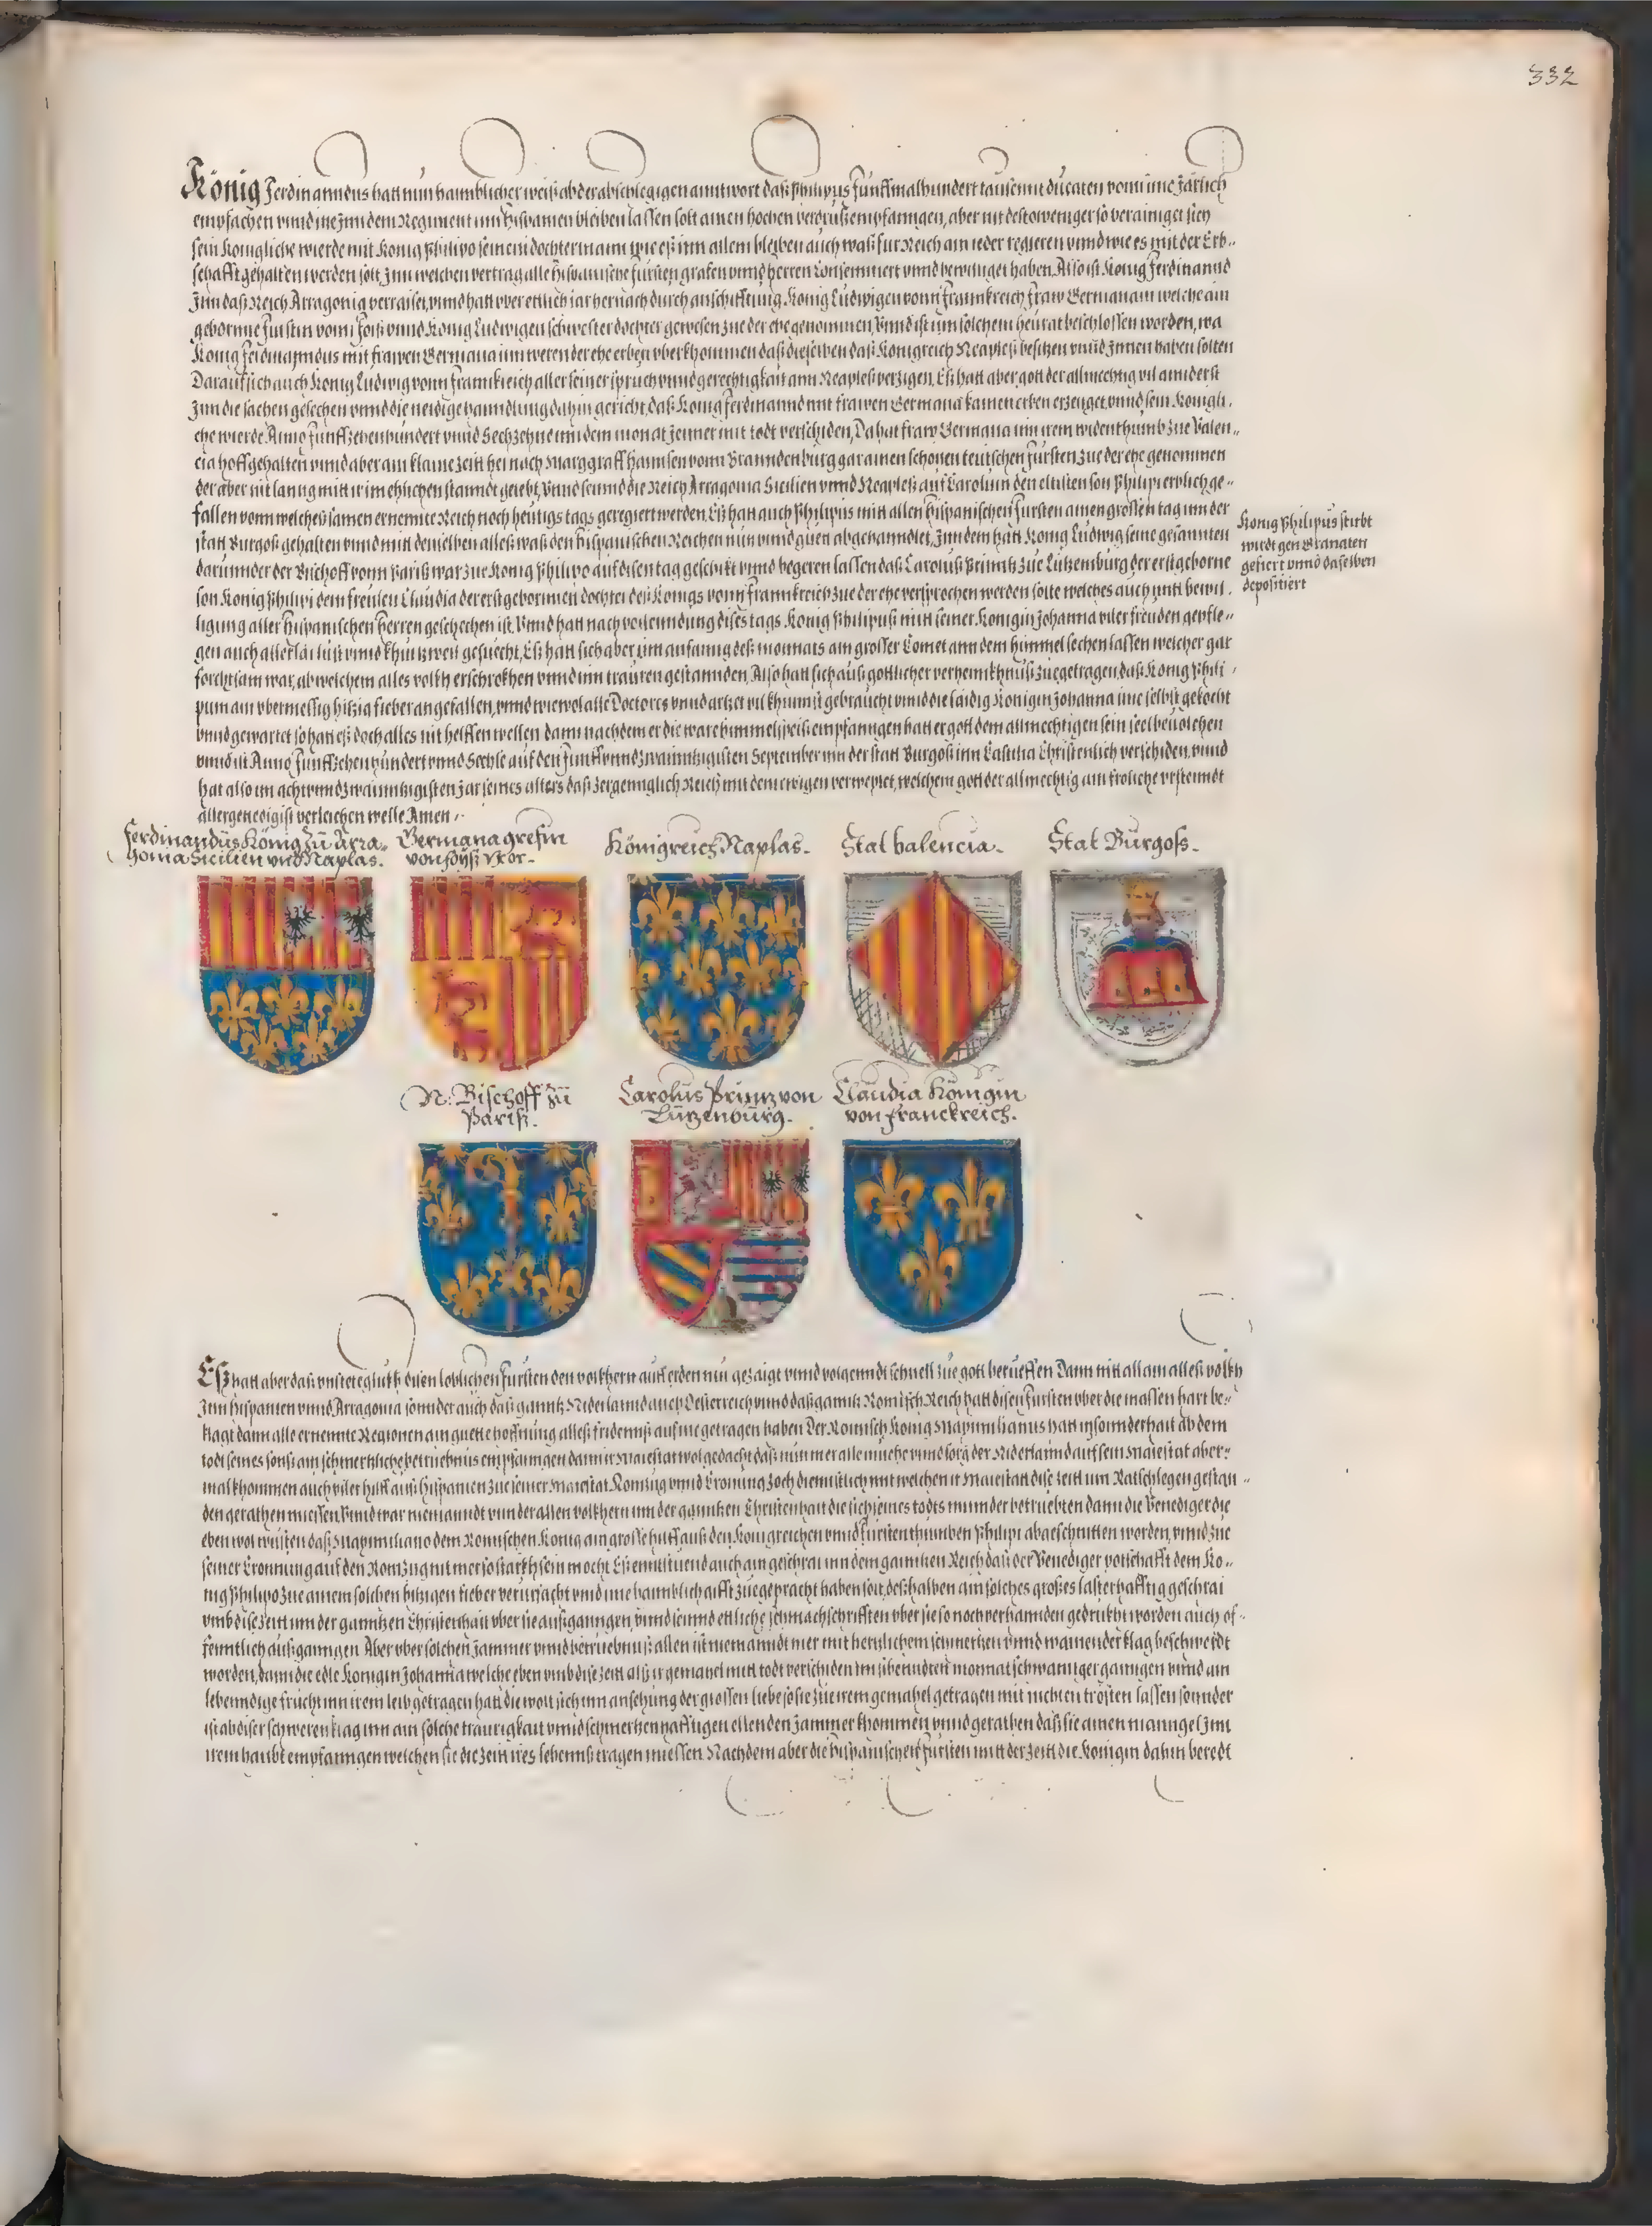 332
König Ferdinanndus hatt nun haimblicher weiß ab der abschlegigen anntwort daß Philipus funffmalhundert tausennt ducaten vonn ime Järlich
empfachen vnnd ine Inn dem Regiment inn Hispanien bleiben lassen solt ainen hochen verdruß empfanngen, aber nit destoweniger so verainiget sich
sein Konigliche wierde mit Konig Philipo seinem dochtermann wie eß inn allem bleiben auch waß fur Reich ain ieder regieren vnnd wie es mit der Erb-
schafft gehalten werden solt, Inn welchen vertrag alle Hispanische fursten grafen vnnd herren Consenntiert vnnd bewilliget haben, Also ist Konig Ferdinannd
Inn daß Reich Arragonia verraiset, vnnd hatt vber ettlich iar hernach durch anschifftung Konig Ludwigen vonn Frannkreich Fraw Germanam welche ain
geborne furstin vonn Foiß vnnd Konig Ludwigen schwester dochter gewesen zue der ehe genommen, Vnnd ist inn solchem heurat beschlossen worden, wa
Konig Ferdinanndus mit frawen Germana inn werender ehe erben vberkhommen daß dieselben daß Konigreich Neapleß besitzen vnnd Innen haben solten
Darauf sich auch Konig Ludwig vonn Frannkreich aller seiner spruch vnnd gerechtigkait ann Neapleß verzigen, Eß hatt aber gott der allmechtig vil annderst
Inn die sachen gesechen vnnd die neidige hanndlung dahin gericht, daß Konig Ferdinannd mit frawen Germana kainen erben erzeuget, vnnd sein Konigli-
che wierde Anno funffzehenhundert vnnd Sechzehne inn dem monat Jenner mit todt verschiden, Da hat fraw Germana inn irem widenthumb zue Valen-
cia hoffgehalten vnnd aber ain klaine zeitt hernoch Marggraff Hannsen vonn Branndenburg gar ainen schonen teutschen fursten zue der ehe genommen
der aber nit lanng mitt ir im ehlichen stanndt gelebt, Vnnd seinnd die Reich Arragonia Sicilien vnnd Neapleß auf Carolum den eltisten son Philipi erblich ge-
fallen vonn welches samen ernennte Reich noch heutigs tags geregiert werden, Eß hatt auch Philipus mitt allen Hispanischen fursten ainen grossen tag inn der
statt Burgoß gehalten vnnd mitt denselben alleß waß den Hispanischen Reichen nutz vnnd guett abgehanndlet, Inn dem hatt Konig Ludwig seine gesannten
darunnder der Bischoff vonn Pariß war zue Konig Philipo auf disen tag geschickt vnnd begeren lassen daß Carolus Prinntz zue Lützemburg der erstgeborne
son Konig Philipi dem freulen Claudia der erstgebornnen dochter deß Königs vonn Frannkreich zue der ehe versprochen werden solte welches auch mitt bewil-
ligung aller Hispanischen Herren geschechen ist, Vnnd hatt nach vollenndung dises tags Konig Philipus mitt seiner Konigin Johanna viler freuden gepfle-
gen auch allerlai lust vnnd khurtzweil gesuecht, Eß hatt sich aber im anfanng deß monnats ain grosser Comet ann dem himmel sechen lassen welcher gar
forchtsam war, ab welchem alles volkh erschrokhen vnnd inn trauren gestannden, Also hatt sich auß gottlicher verhennkhnuß zuegetragen, daß Konig Phili-
pum ain vbermessig hitzig fieber angefallen, vnnd wiewol alle Doctores vnnd artzet vil khunnst gebraucht vnnd die laidig Konigin Johanna ime selbst gekocht
vnnd gewartet so hatt eß doch alles nit helffen wellen dann nachdem er die ware himmelspeiß empfanngen hatt er gott dem allmechtigen sein seel beuolchen
vnnd ist Anno funffzehenhundert vnnd Sechse auf den funffvnndzwainntzigisten September inn der statt Burgoß inn Castilia Christenlich verschiden, vnnd
hat also im achtvnndzwainntzigisten Jar seines alters daß zergenngklich Reich mit dem ewigen verwexlet, welchem gott der allmechtig ain froliche vrstenndt
allergenedigist verleichen welle Amen
Konig Philipus stirbt
wirdt gen Granaten
gefiert vnnd daselben
depositiert
Ferdinandüs König zü Arra-
gonia Sicilien vnd Naplas.
Germana grefin
von Foyß vxor.
Königreich Naplas.
Stat valencia.
Stat Bürgoß.
N: Bischoff zü
Pariß.
Carolus Printz von
Lützenbürg.
Claüdia Königin
von Franckreich.
Eß hatt aber daß vnstete glukh disen loblichen fursten den volkhern auf erden nun gezaigt vnnd volgenndt schnell zue gott berueffen Dann nitt allain alleß volkh
Inn Hispanien vnnd Arragonia sonnder auch daß ganntz Niderlannd auch Oesterreich vnnd daß ganntz Romisch Reich hatt disen fursten vber die massen hart be-
klagt dann alle ernennte Regionen ain guette hoffnung alleß fridenns auf ine getragen haben Der Romisch Konig Maximilianus hatt insonnderhait ab dem
todt seines sonß ain schmertzliche betruebnus empfanngen dann ir Maiestat wol gedacht daß nun mer alle muehe vnnd sorg der Niderlannd auf sein Maiestat aber-
mal khommen auch viler hilff auß Hispanien zue seiner Maiestat Romzug vnnd Cronung
den gerathen miessen, Vnnd war niemanndt vnnder allen volkhern inn der ganntzen Christenhait die sich seines todts minnder betruebten dann die Venediger die
eben wol wusten daß Maximiliano dem Romischen Konig ain grosse hilff auß den Konigreichen vnnd furstenthumben Philipi abgeschnitten worden, vnnd zue
seiner Cronung auf den Romzug nit mer so starkh sein mocht Eß enntstuend auch ain geschrai inn dem ganntzen Reich daß der Venediger pottschafft dem Ko-
nig Philipo zue ainem solchen hitzigen fieber verursacht vnnd ime haimblich gifft zuegepracht haben solt, deßhalben ain solches großes lasterhafftig geschrai
vmb dise zeitt inn der ganntzen Christenhait vber sie außganngen, vnnd seinnd ettliche schmachschrifften vber sie so noch verhannden gedrukht worden auch of-
fenntlich außganngen Aber vber solchen Jammer vnnd betruebnuß allen ist niemanndt mer mit hertzlichem schmertzen vnnd wainender klag beschwerdt
worden, dann die edle Konigin Johanna welche eben vmb dise zeitt alß ir gemahel mitt todt verschiden im sibenndten monnat schwannger ganngen vnnd ain
lebenndige frucht inn irem leib getragen hatt die wolt sich inn ansehung der grossen liebe so sie zue irem gemahel getragen mit nichten trösten lassen sonnder
ist ab diser schweren klag inn ain solche traurigkait vnnd schmertzenhafftigen ellenden Jammer khommen vnnd gerathen daß sie ainen manngel Inn
irem haubt empfanngen welchen sie die zeitt ires lebenns tragen miessen. Nachdem aber die Hispanischen fursten mitt der zeitt die Konigin dahin beredt